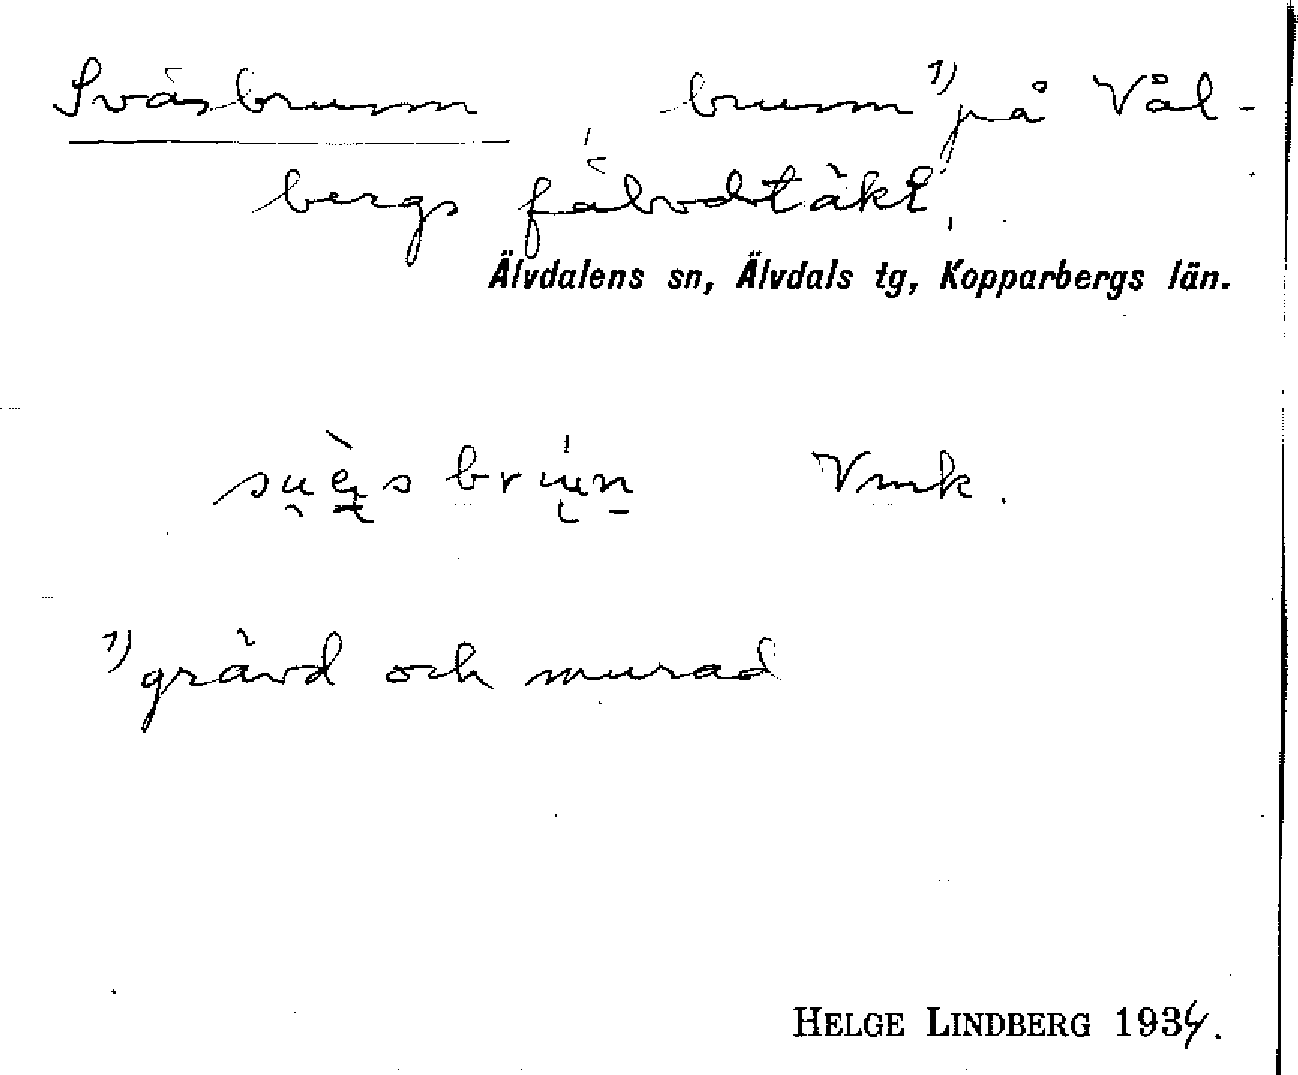 Sväsbrunn brunn 1) på Vål-
bergs fäbodtäkt,
Älvdalens sn, Älvdals tg, Kopparbergs län.
Vmk.
1) grävd och murad
HELGE LINDBERG 1934.